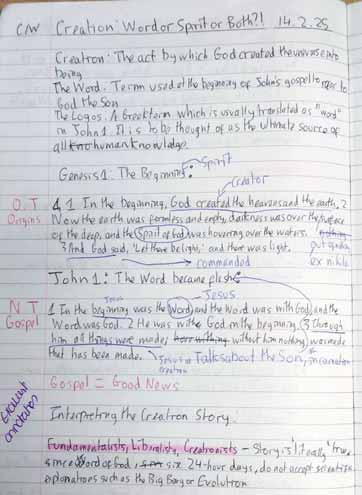 C/W Creation: Word or Spirit or Both?! 14.2.25
Creation: The act by which God created the universe into
being
The Word. Term used at the beginning of John's gospel to refer to
God the Son
The Logos. A Greek term which is usually translated as "word"
in John 1. It is to be thought of as the ultimate source of
all human knowledge.
Genesis 1: The Beginning: Spirit
Creator
O.T Origins
1 In the beginning, God created the heavens and the earth, 2
Now the earth was formless and empty, darkness was over the surface
of the deep, and the Spirit of God was hovering over the waters. nothing
3 And God said, 'Let there be light,' and there was light. out of
commanded ex nihilo
John 1: The Word became flesh:
Jesus Jesus
NT Gospel
1 In the beginning was the Word, and the Word was with God, and the
Word was God. 2 He was with God in the beginning. 3 Through
him all things were made; without him nothing was made
that has been made. Jesus at creation Talks about the Son, incarnation
Gospel = Good News
Interpreting the Creation Story.
Fundamentalists, Literalists, Creationists - Story is 'literally' true
since Word of God, six 24-hour days, do not accept scientific
explanations such as the Big Bang or Evolution